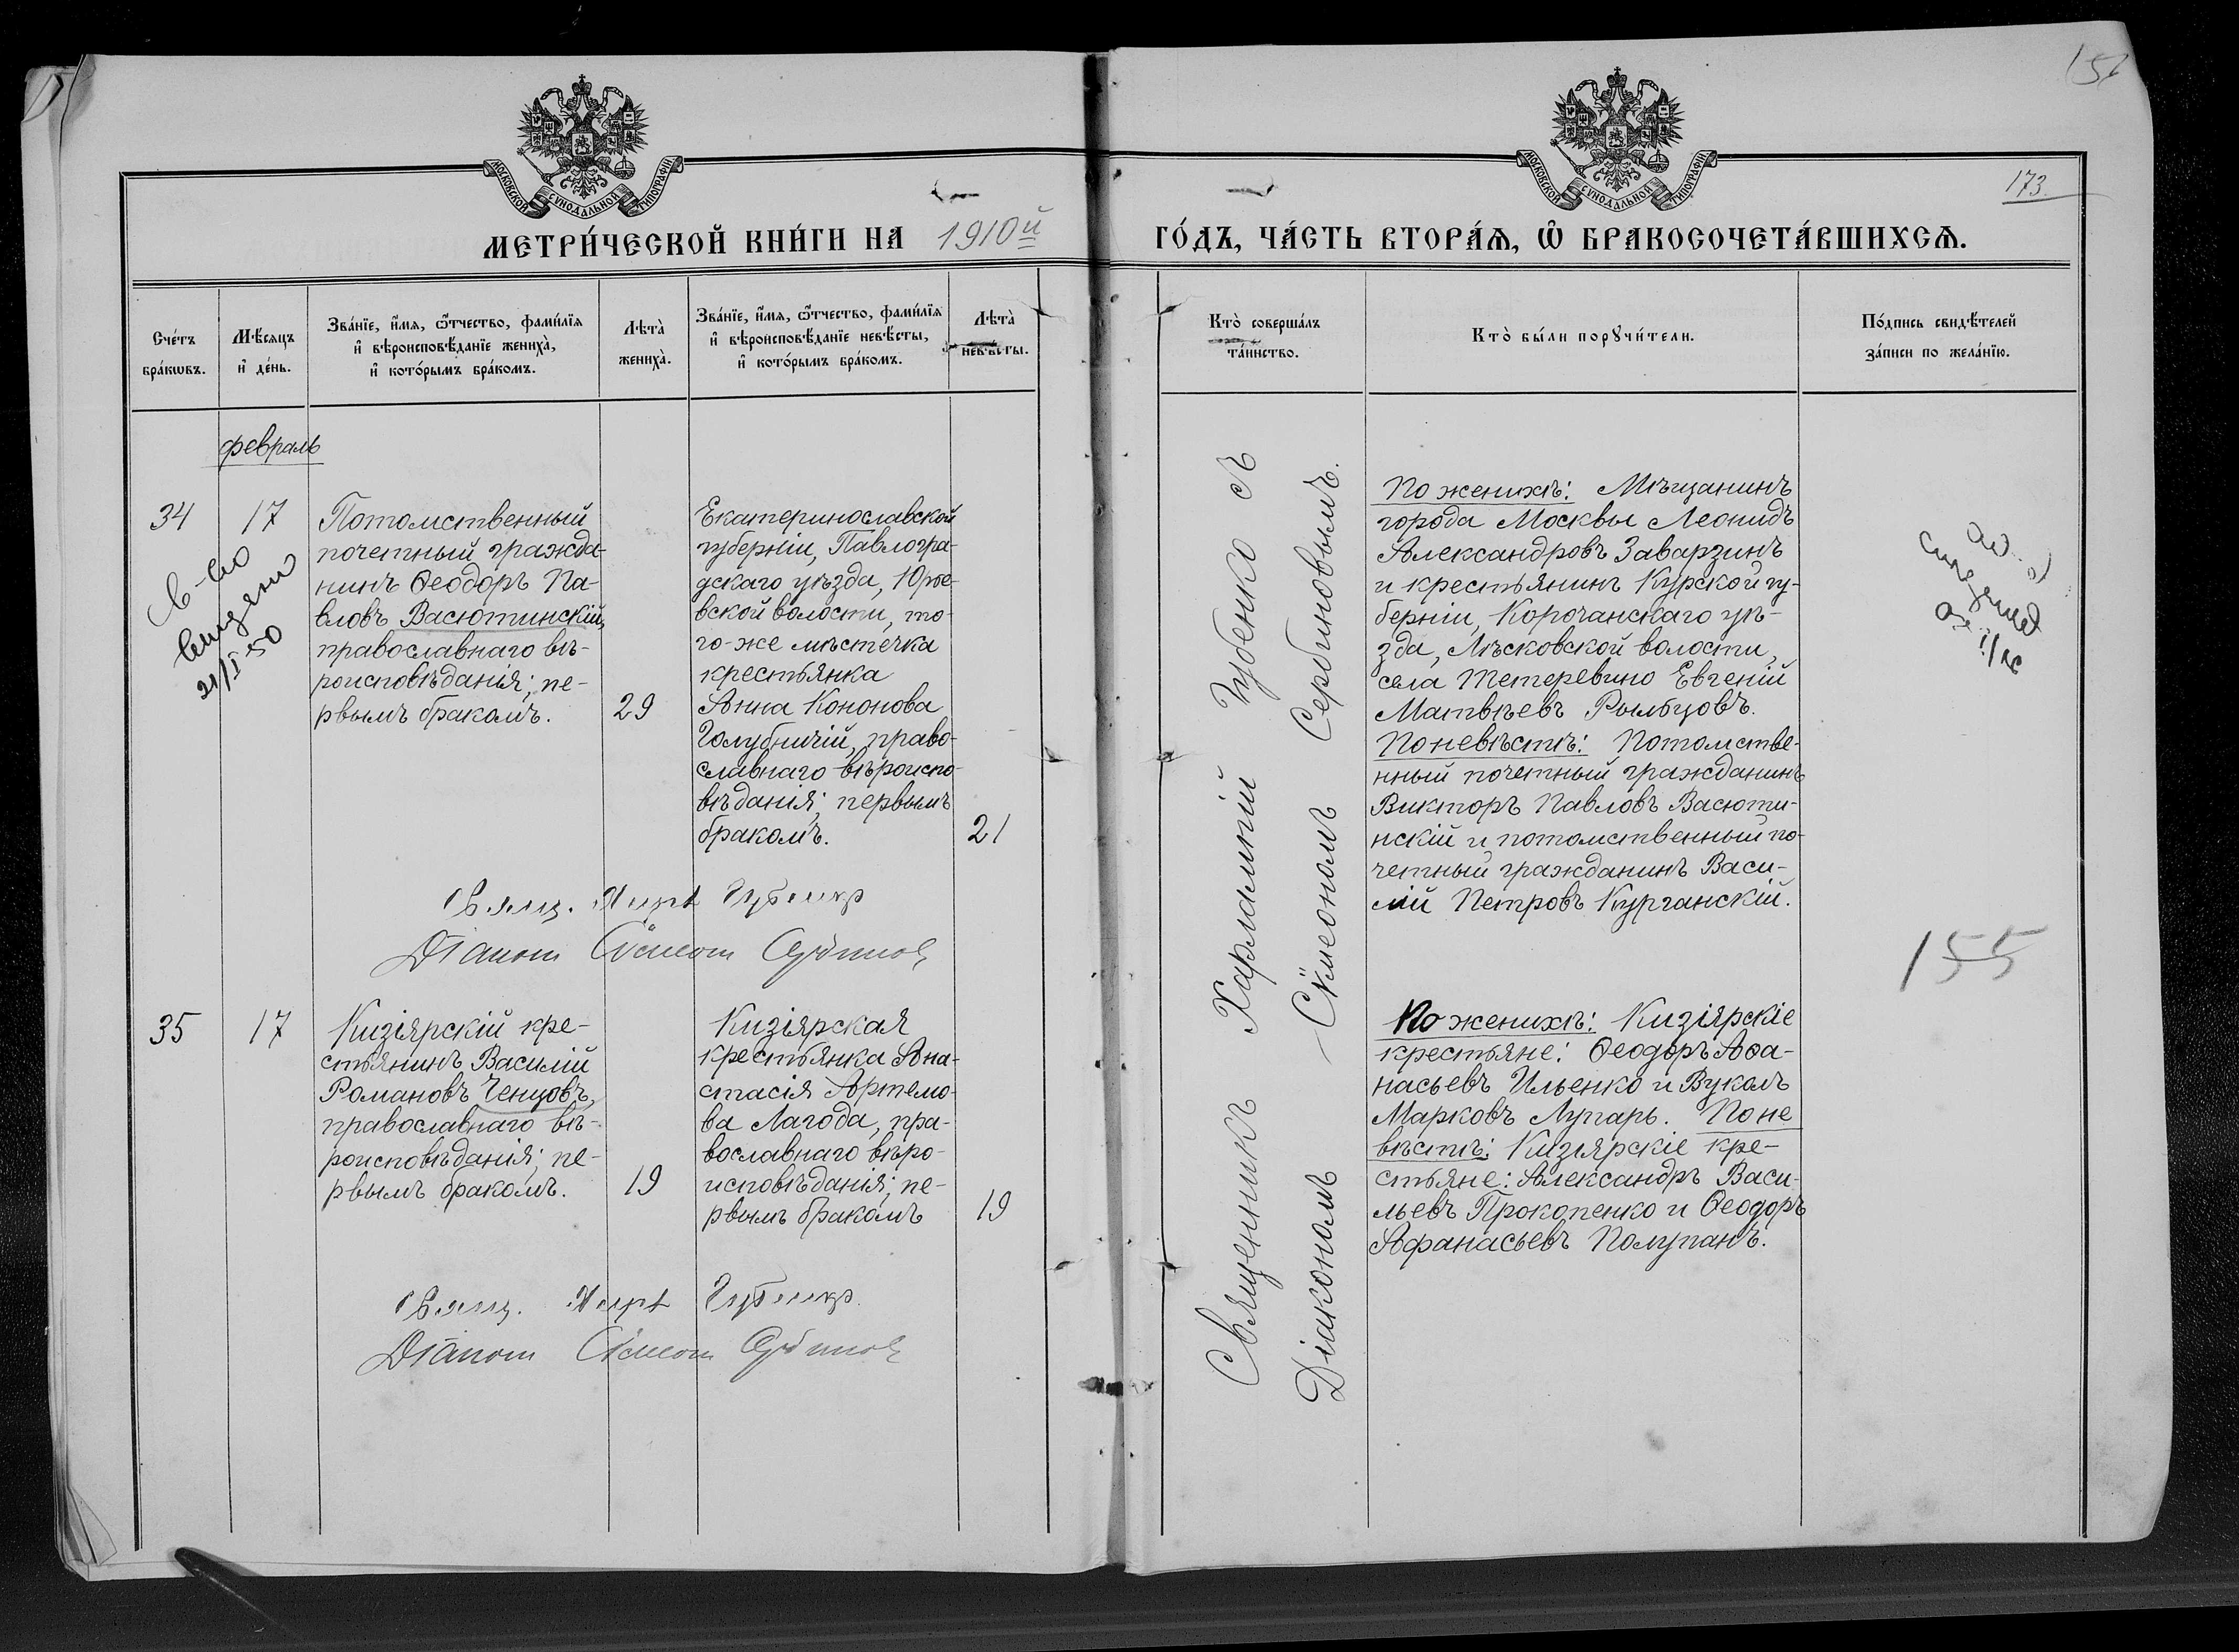 151
173.
МОСКОВСКОЙ СѴНОДАЛЬНОЙ ТИПОГРАФІИ
МЕТРИ́ЧЕСКОЙ КНИ́ГИ НА 1910й
МОСКОВСКОЙ СѴНОДАЛЬНОЙ ТИПОГРАФІИ
ГО́ДЪ, ЧА́СТЬ ВТОРА́Ѧ, Ѽ БРАКОСОЧЕТА́ВШИХСѦ.
Сче́тъ
бра́кѡвъ.
Мѣ́сяцъ
и҆ де́нь.
Зва́нїе, и҆́мя, ѻ҆́тчество, фами́лїя
и҆ вѣроисповѣ́данїе жениха̀,
и҆ кото́рымъ бра́комъ.
Лѣ́та̀
жениха̀.
Зва́нїе, и҆́мя, ѻ҆́тчество, фами́лїя
и҆ вѣроисповѣ́данїе невѣ́сты,
и҆ кото́рымъ бра́комъ.
Лѣ́та̀
невѣ́сты.
Кто̀ соверша́лъ
та́инство.
Кто̀ бы́ли порꙋчи́тели.
По́дпись свидѣ́телей
за́писи по жела́нїю.
февраль
34
17
Потомственный
почетный гражда-
нинъ Ѳеодоръ Па-
вловъ Васютинскій,
православнаго вѣ-
роисповѣданія; пе-
рвымъ бракомъ.
29
Екатеринославской
губерніи, Павлогра-
дскаго уѣзда, Юрье-
вской волости, то-
го-же мѣстечка
крестьянка
Анна Кононова
Голубничій, право-
славнаго вѣроиспо-
вѣданія; первымъ
бракомъ.
21
Св-во
выдано
21/I 50
Свящ. Харл. Губенко
Діаконъ Сѵмеонъ Сербиновъ
Священникъ Харлампій Губенко съ
Діакономъ Сѵмеономъ Сербиновымъ.
По женихѣ: Мѣщанинъ
города Москвы Леонидъ
Александровъ Заварзинъ
и крестьянинъ Курской гу-
берніи, Корочанскаго уѣ-
зда, Лѣсковской волости,
села Тетеревино Евгеній
Матвѣевъ Рыльцовъ.
По невѣстѣ: Потомстве-
нный почетный гражданинъ
Викторъ Павловъ Васюти-
нскій и потомственный по-
четный гражданинъ Васи-
лій Петровъ Курганскій.
155
35
17
Кизіярскій кре-
стьянинъ Василій
Романовъ Ченцовъ,
православнаго вѣ-
роисповѣданія; пе-
рвымъ бракомъ.
19
Кизіярская
крестьянка Ана-
стасія Артемо-
ва Лагода, пра-
вославнаго вѣро-
исповѣданія; пе-
рвымъ бракомъ
19
Свящ. Харл. Губенко
Діаконъ Сѵмеонъ Сербиновъ
По женихѣ: Кизіярскіе
крестьяне: Ѳеодоръ Аѳа-
насьевъ Ильенко и Вуколъ
Марковъ Лугарь. По не
вѣстѣ: Кизіярскіе кре-
стьяне: Александръ Васи-
льевъ Прокопенко и Ѳеодоръ
Афанасьевъ Полупанъ.